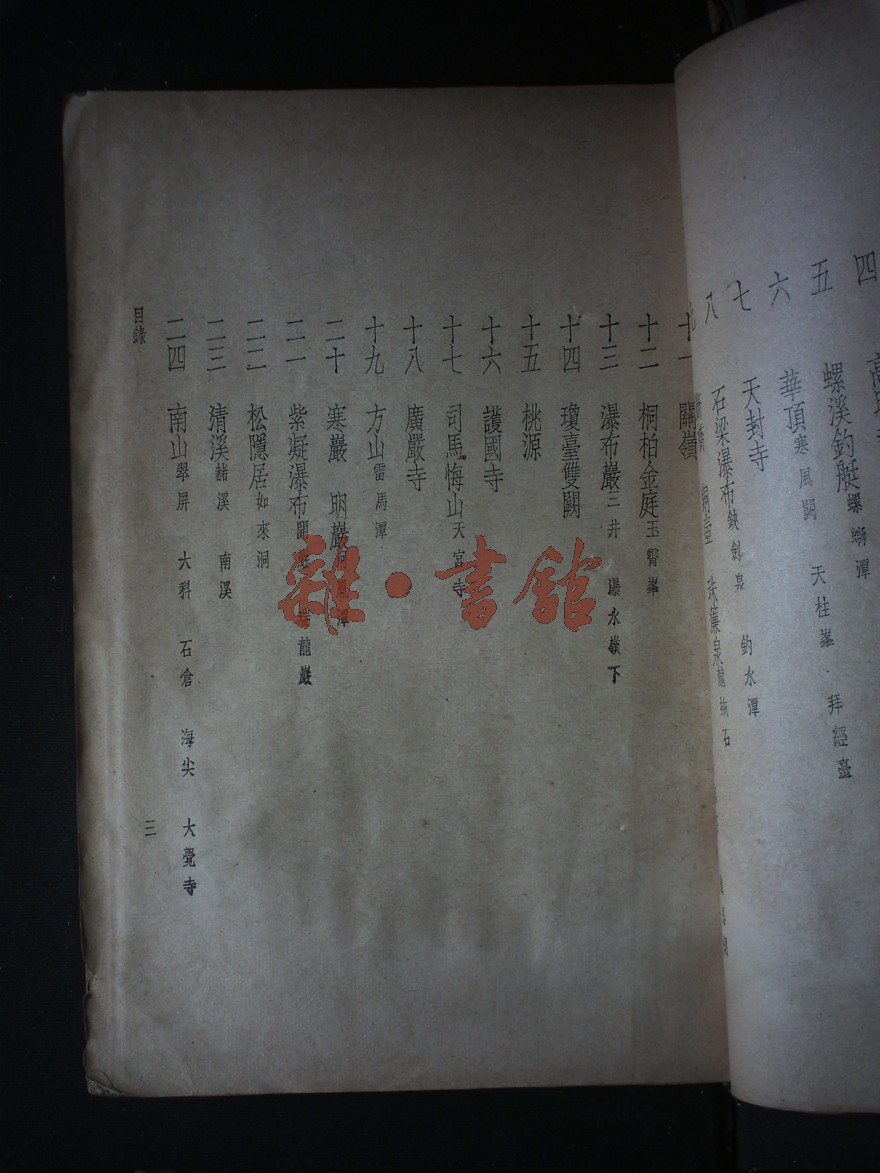 四
五 螺溪釣艇 螺螄潭
六 華頂 寒風闕 天柱峯 拜經臺
七 天封寺
八 石梁瀑布 銕剑泉 釣水潭
珠簾泉
十一 關嶺
十二 桐柏金庭 玉霄峯
十三 瀑布巖 三井 瀑水嶺下
十四 瓊臺雙闕
十五 桃源
十六 護國寺
十七 司馬悔山 天宮寺
十八 廣嚴寺
十九 方山 雷馬潭
二十 寒巖 明巖 潭
二一 紫凝瀑布 龍巖
二二 松隱居 如來洞
二三 清溪 赭溪 南溪
二四 南山 翠屏 大科 石倉 海尖 大覺寺
目錄
三
雜·書館